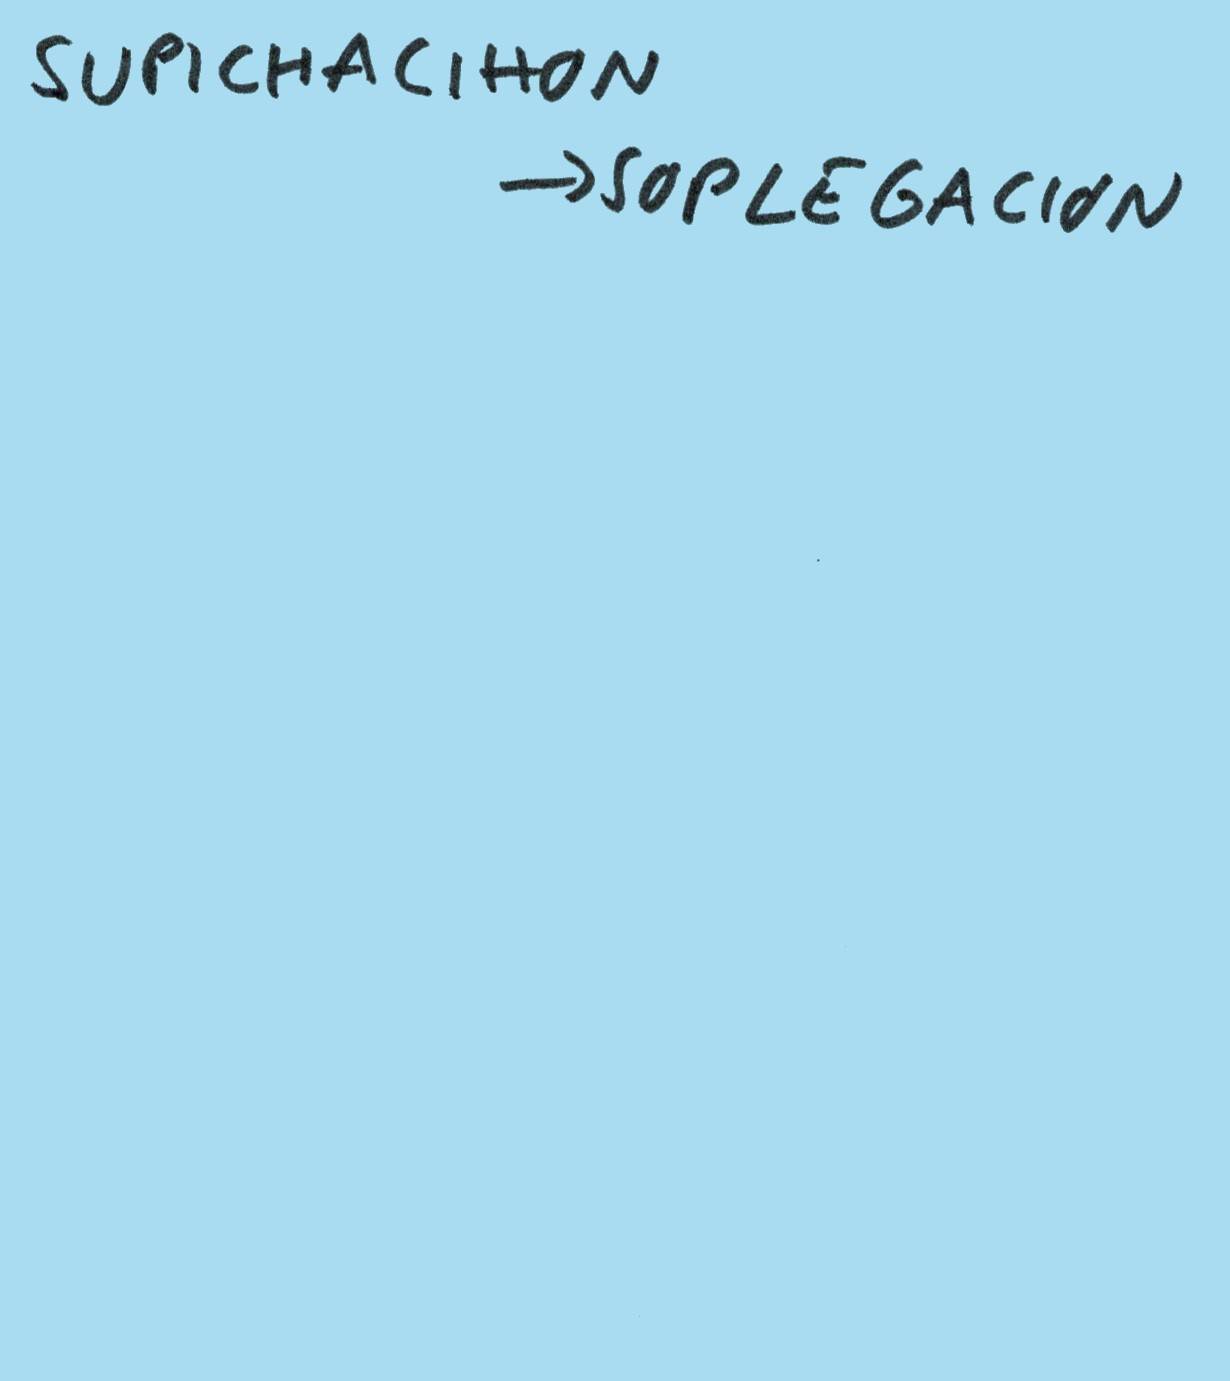 SUPICHACIHON
→SOPLEGACION